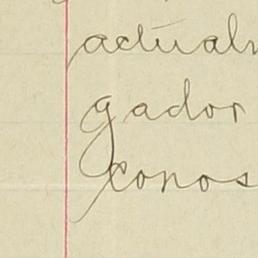 actual
gador
conos